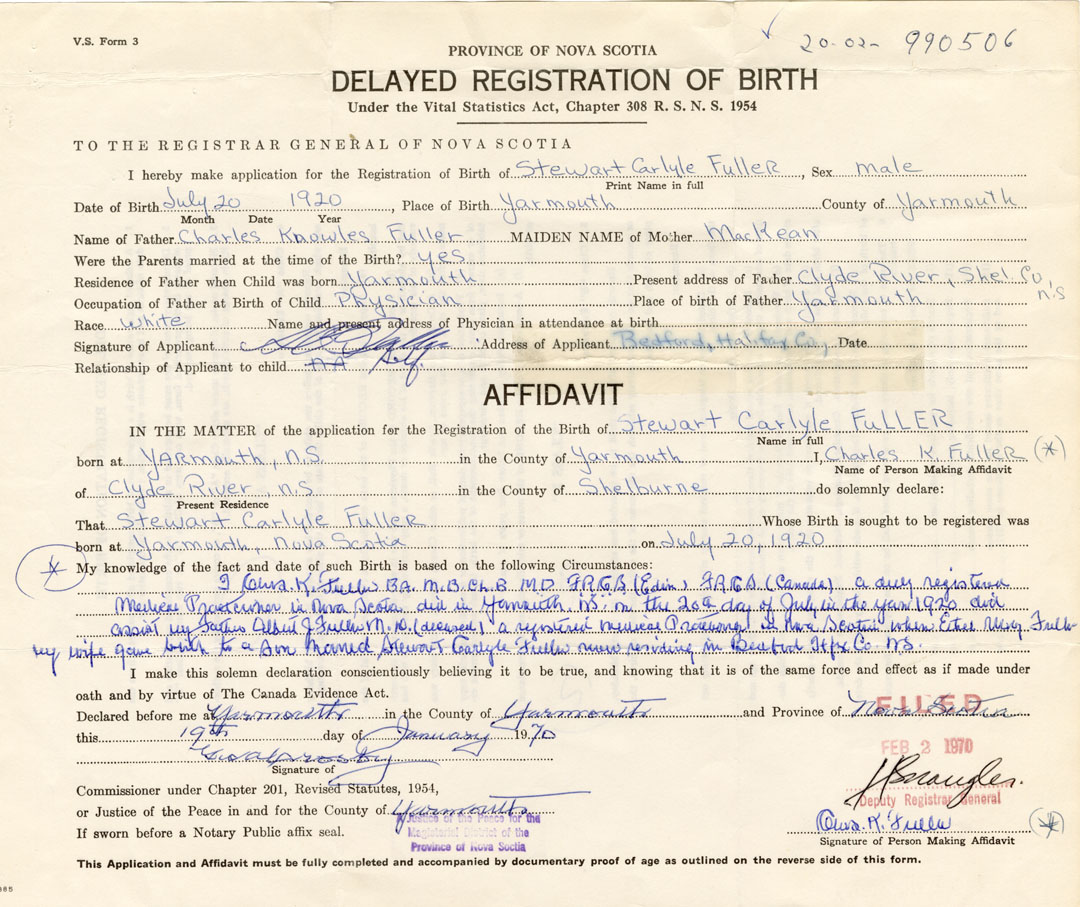 V.S. Form 3
20-02- 990506
PROVINCE OF NOVA SCOTIA
DELAYED REGISTRATION OF BIRTH
Under the Vital Statistics Act, Chapter 308 R. S. N. S. 1954
TO THE REGISTRAR GENERAL OF NOVA SCOTIA
I hereby make application for the Registration of Birth of Stewart Carlyle Fuller, Sex male
Print Name in full
Date of Birth July 20 1920, Place of Birth Yarmouth County of Yarmouth
Month Date Year
Name of Father Charles Knowles Fuller MAIDEN NAME of Mother MacKean
Were the Parents married at the time of the Birth? yes
Residence of Father when Child was born Yarmouth Present address of Father Clyde River, Shel. Co, n's
Occupation of Father at Birth of Child Physician Place of birth of Father Yarmouth
Race white Name and present address of Physician in attendance at birth
Signature of Applicant Address of Applicant Bedford, Halifax Co., Date
Relationship of Applicant to child NA Self.
AFFIDAVIT
IN THE MATTER of the application for the Registration of the Birth of Stewart Carlyle FuLLER
Name in full
born at YARmouth, N.S. in the County of Yarmouth I, Charles K. FulleR (*)
Name of Person Making Affidavit
of Clyde River, n.S in the County of Shelburne do solemnly declare:
Present Residence
That Stewart Carlyle Fuller Whose Birth is sought to be registered was
born at Yarmouth, Nova Scotia on July 20, 1920
* My knowledge of the fact and date of such Birth is based on the following Circumstances:
I Chas. K. Fuller BA. M.B. Ch.B. MD. F.R.C.S (Edin) F.R.C.S. (Canada) a duly registered
Medical Practicioner in Nova Scotia did in Yarmouth NS. on the 20th day of July in the year 1920 did
assist my Father Albert J. Fuller M.D. (deceased) a registered medical in Nova Scotia when Ethel Fuller
my wife gave birth to a Son Named Stewart Carlyle Fuller now residing in Bedford Hfx Co. NS.
I make this solemn declaration conscientiously believing it to be true, and knowing that it is of the same force and effect as if made under
oath and by virtue of The Canada Evidence Act.
Declared before me at Yarmouth in the County of Yarmouth and Province of Nova Scotia
FILED
this 19th day of January 1970
FEB 2 1970
Signature of
Commissioner under Chapter 201, Revised Statutes, 1954,
Deputy Registrar General
or Justice of the Peace in and for the County of Yarmouth
A Justice of the Peace for the
Magisterial District of the
Province of Nova Soctia
Chas. K. Fuller (*)
If sworn before a Notary Public affix seal.
Signature of Person Making Affidavit
This Application and Affidavit must be fully completed and accompanied by documentary proof of age as outlined on the reverse side of this form.